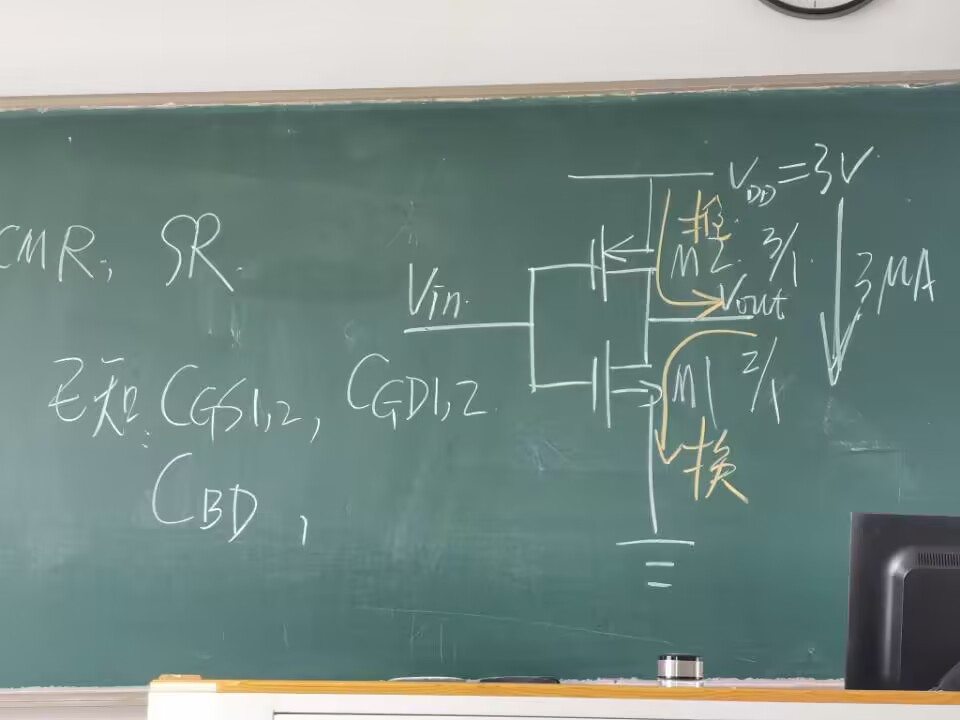 CMR, SR.
已知: CGS1,2, CGD1,2.
CBD,
VDD=3V
推
M2 3/1
3μA
Vin
Vout
M1 2/1
换